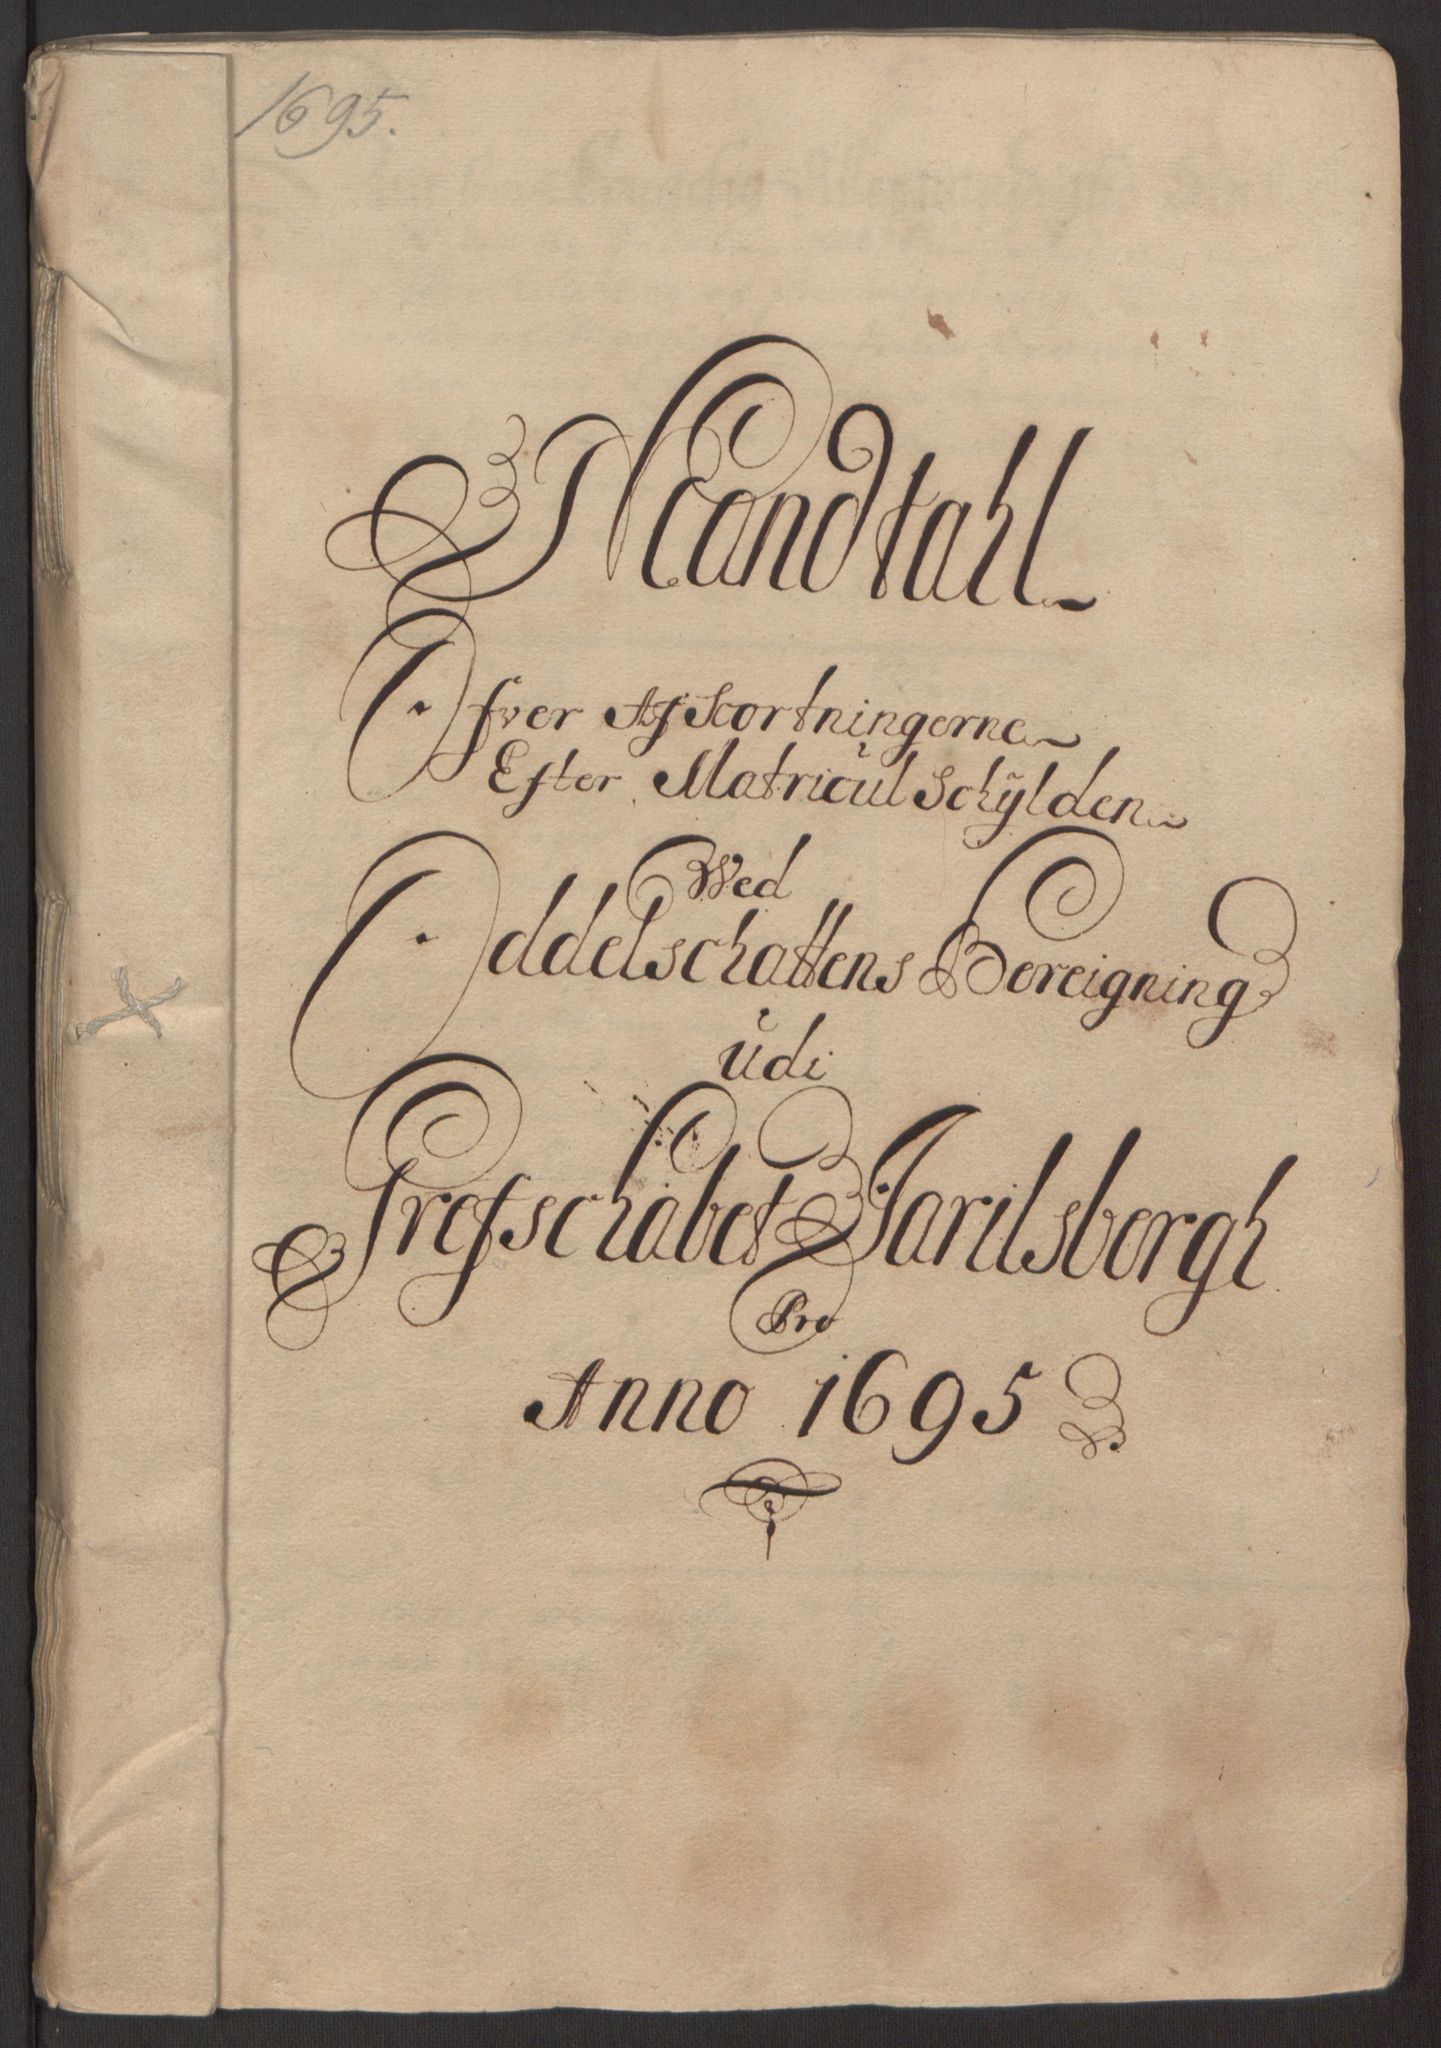 1695.
Mandtahl
Ofver Afkortningerne
Efter Matricul Schÿlden
Wed
Oddelschattens Bereigning
udi
Grefschabet Jarilsbergh
Pro
Anno 1695